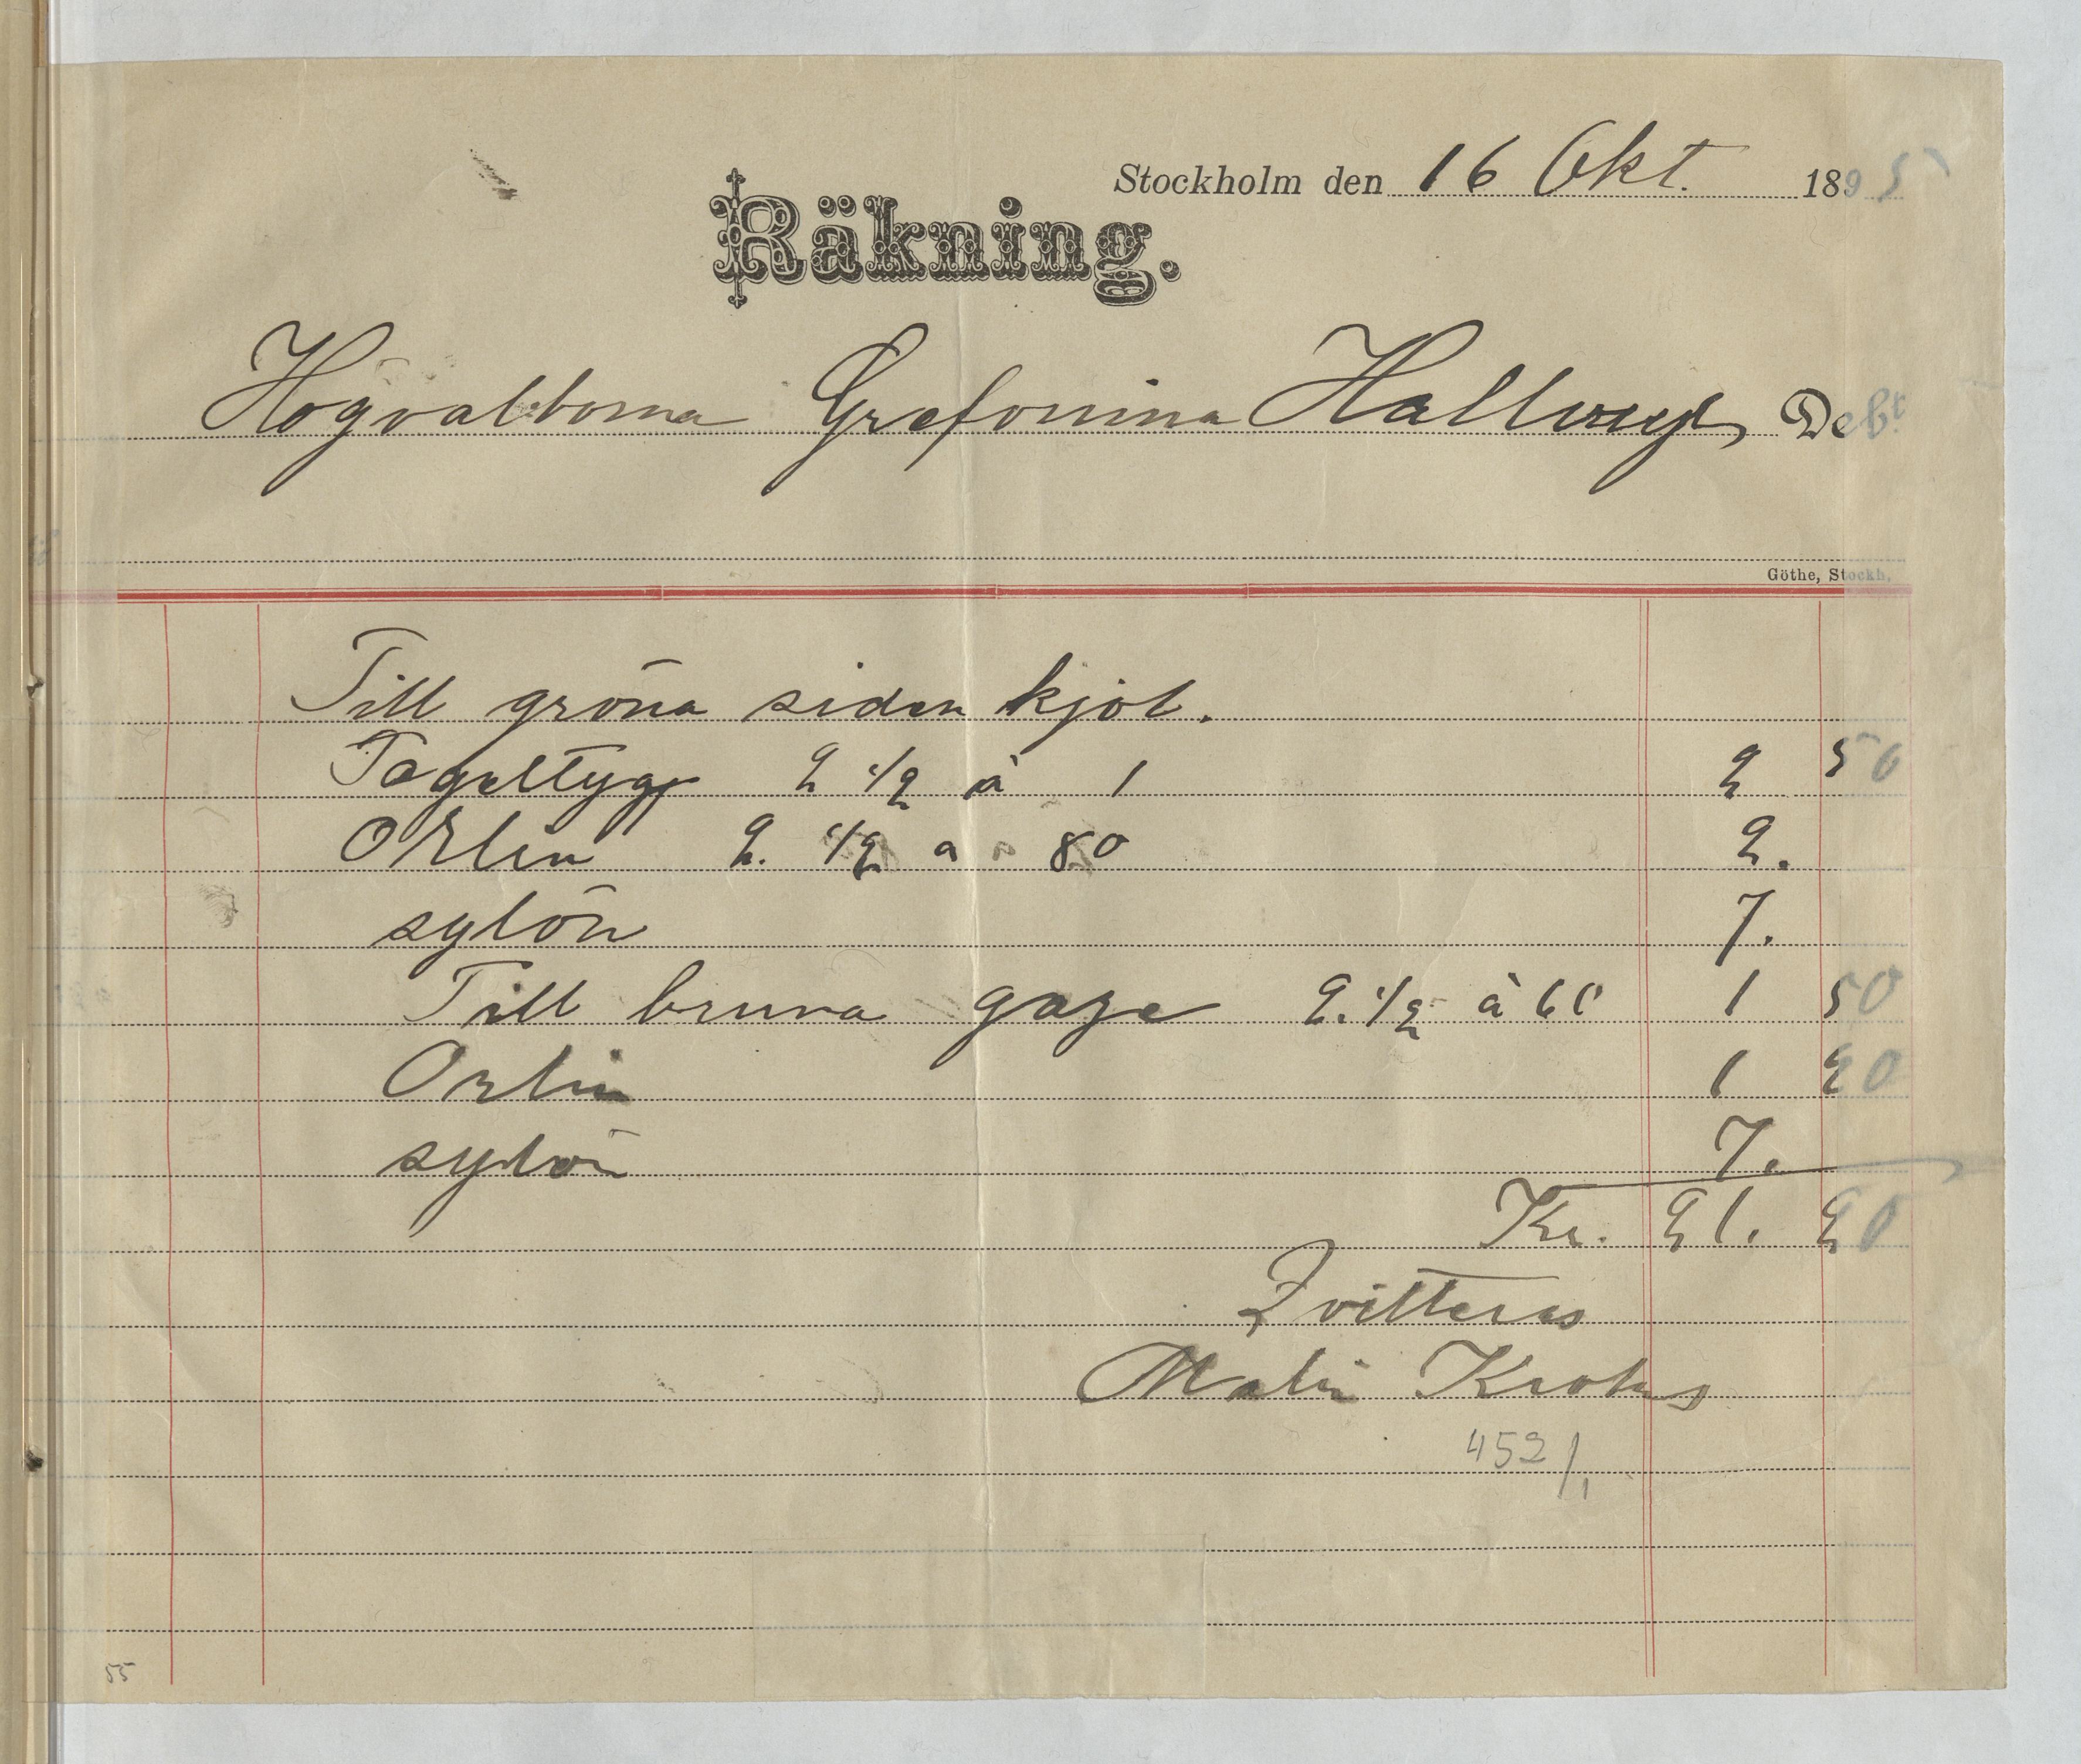 Stockholm den 16 Okt. 1895
Räkning.
Högvälborna Grefvinna Hallwyl Debt.
Göthe, Stockh.
Till gröna siden kjol.
Tageltyg 2 1/2 à 1 2 50
Orlin 2. 1/2 a 80 2.
sylön 7.
Till bruna gaze 2. 1/2 à 60 1 50
Orlin 1 20
sylön 7.
Kr. 21. 20
Qvitteras
Malin
452/1
55